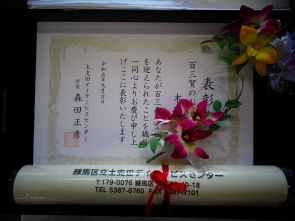 表彰
百三賀の
あなたが百三
を迎えられたことを職
一同心よりお慶び申し上
げここに表彰いたします
令和五年九月吉日
土支田デイサービスセンター
所長 森田正彦
練馬区立土支田デイサービスセンター
〒179-0076 練馬区
TEL 5387-6760
FAX 5387-2101